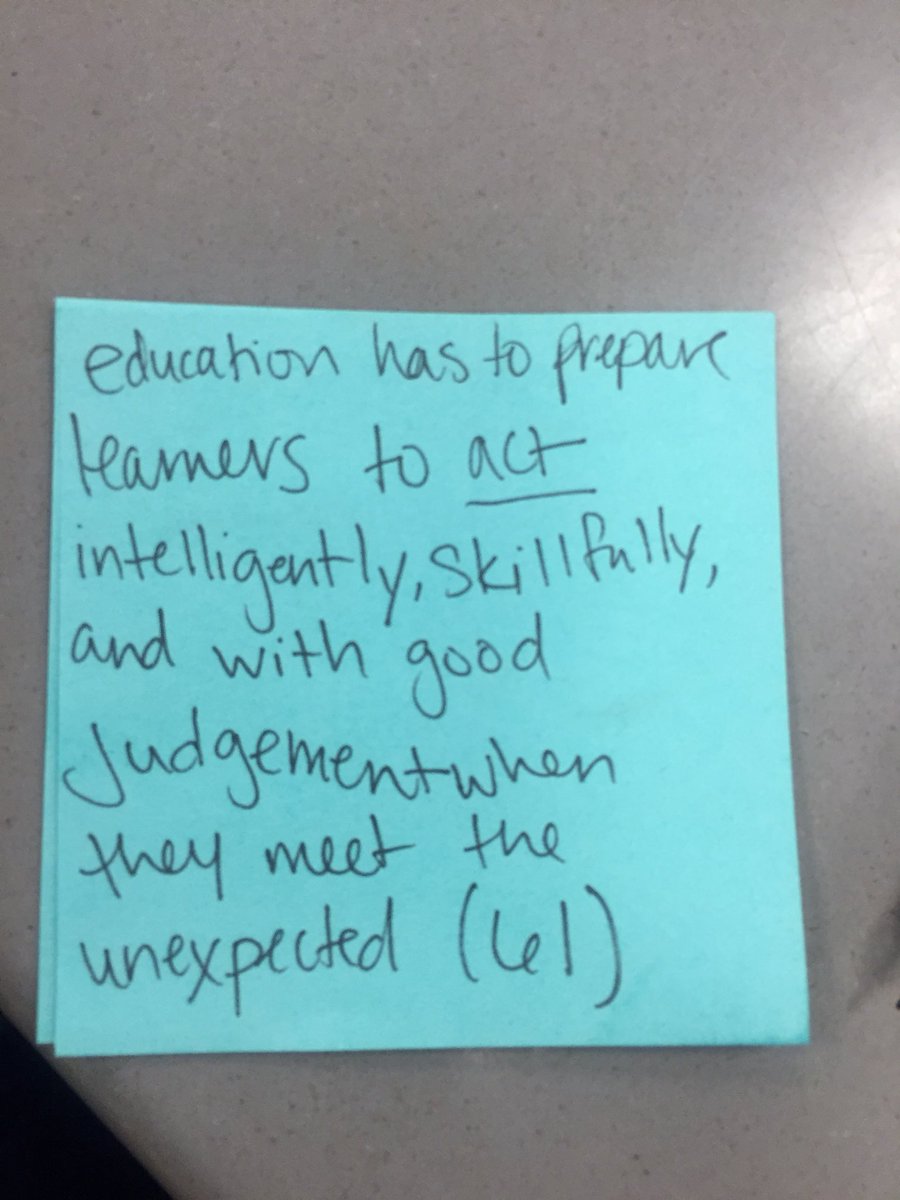 education has to prepare
learners to act
intelligently, skillfully,
and with good
judgement when
they meet the
unexpected (61)